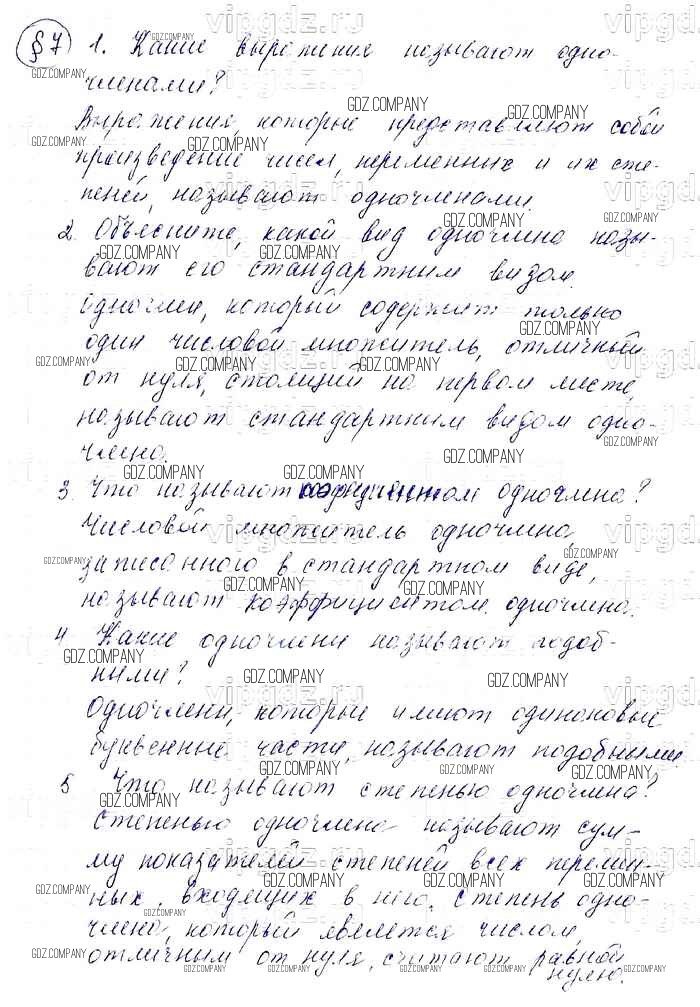 §7 1. Какие выражения называют одно-
членами?
Выражения, которые представляют собой
произведение чисел, переменных и их сте-
пеней, называют одночленами.
2. Объясните, какой вид одночлена назы-
вают его стандартным видом.
Одночлен, который содержит только
один числовой множитель, отличный
от нуля, стоящий на первом месте,
называют стандартным видом одно-
члена.
3. Что называют коэффициентом одночлена?
Числовой множитель одночлена,
записанного в стандартном виде,
называют коэффициентом одночлена.
4 Какие одночлены называют подоб-
ными?
Одночлены, которые имеют одинаковые
буквенные части, называют подобными
5 Что называют степенью одночлена?
Степенью одночлена называют сум-
му показателей степеней всех перемен-
ных, входящих в него. Степень одно-
члена, который является числом,
отличным от нуля, считают равной
нулю.